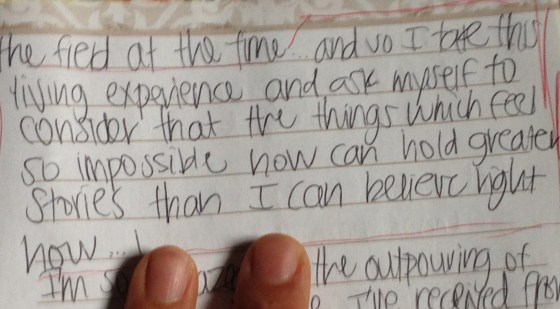 the field at the time... and so I take this
living experience and ask myself to
consider that the things which feel
so impossible now can hold greater
stories than I can believe right
now...
I'm the outpouring of
I've received from